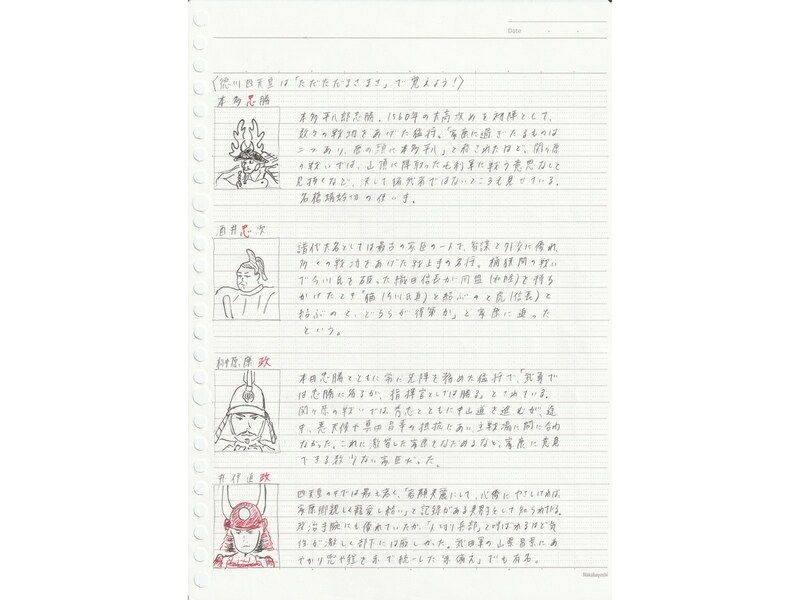 Date
〈徳川四天王は「ただただまさまさ」で覚えよう!〉
本多忠勝
本多平八郎忠勝。1560年の大高攻めを初陣として、
数々の戦功をあげた猛将。「家康に過ぎたるものは
二つあり、唐の頭に本多平八」と称されたほど。関ヶ原
の戦いでは、山頂に陣取った毛利軍に戦う意思なしと
見抜くなど、決して猪武者ではないところも見せている。
名槍蜻蛉切の使い手。
酒井忠次
譜代大名としては最古の家臣の一人で、知謀と外交に優れ、
多くの戦功をあげた戦上手の名将。桶狭間の戦い
で今川氏を破った織田信長が同盟(和睦)を持ち
かけたとき「猫(今川氏真)と結ぶのと虎(信長)と
結ぶのと、どちらが得策か」と家康に迫った
という。
榊原康政
本田忠勝とともに常に先陣を務めた猛将で、「武勇で
は忠勝に劣るが、指揮官としては勝る」とされている。
関ヶ原の戦いでは、秀忠とともに中山道を進むが、途
中、悪天候や真田昌幸の抵抗にあい、主戦場に間に合わ
なかった。これに激怒した家康をなだめるなど、家康に意見
できる数少ない家臣だった。
井伊直政
四天王の中では最も若く、「容顔美麗にして、心優にやさしければ、
家康卿親しく寵愛し給い」と記録がある美男としても知られる。
政治手腕にも優れていたが、「人斬り兵部」と呼ばれるほど気
性が激しく部下には厳しかった。武田軍の山県昌景にあ
やかり兜や鎧を赤で統一した「赤備え」でも有名。